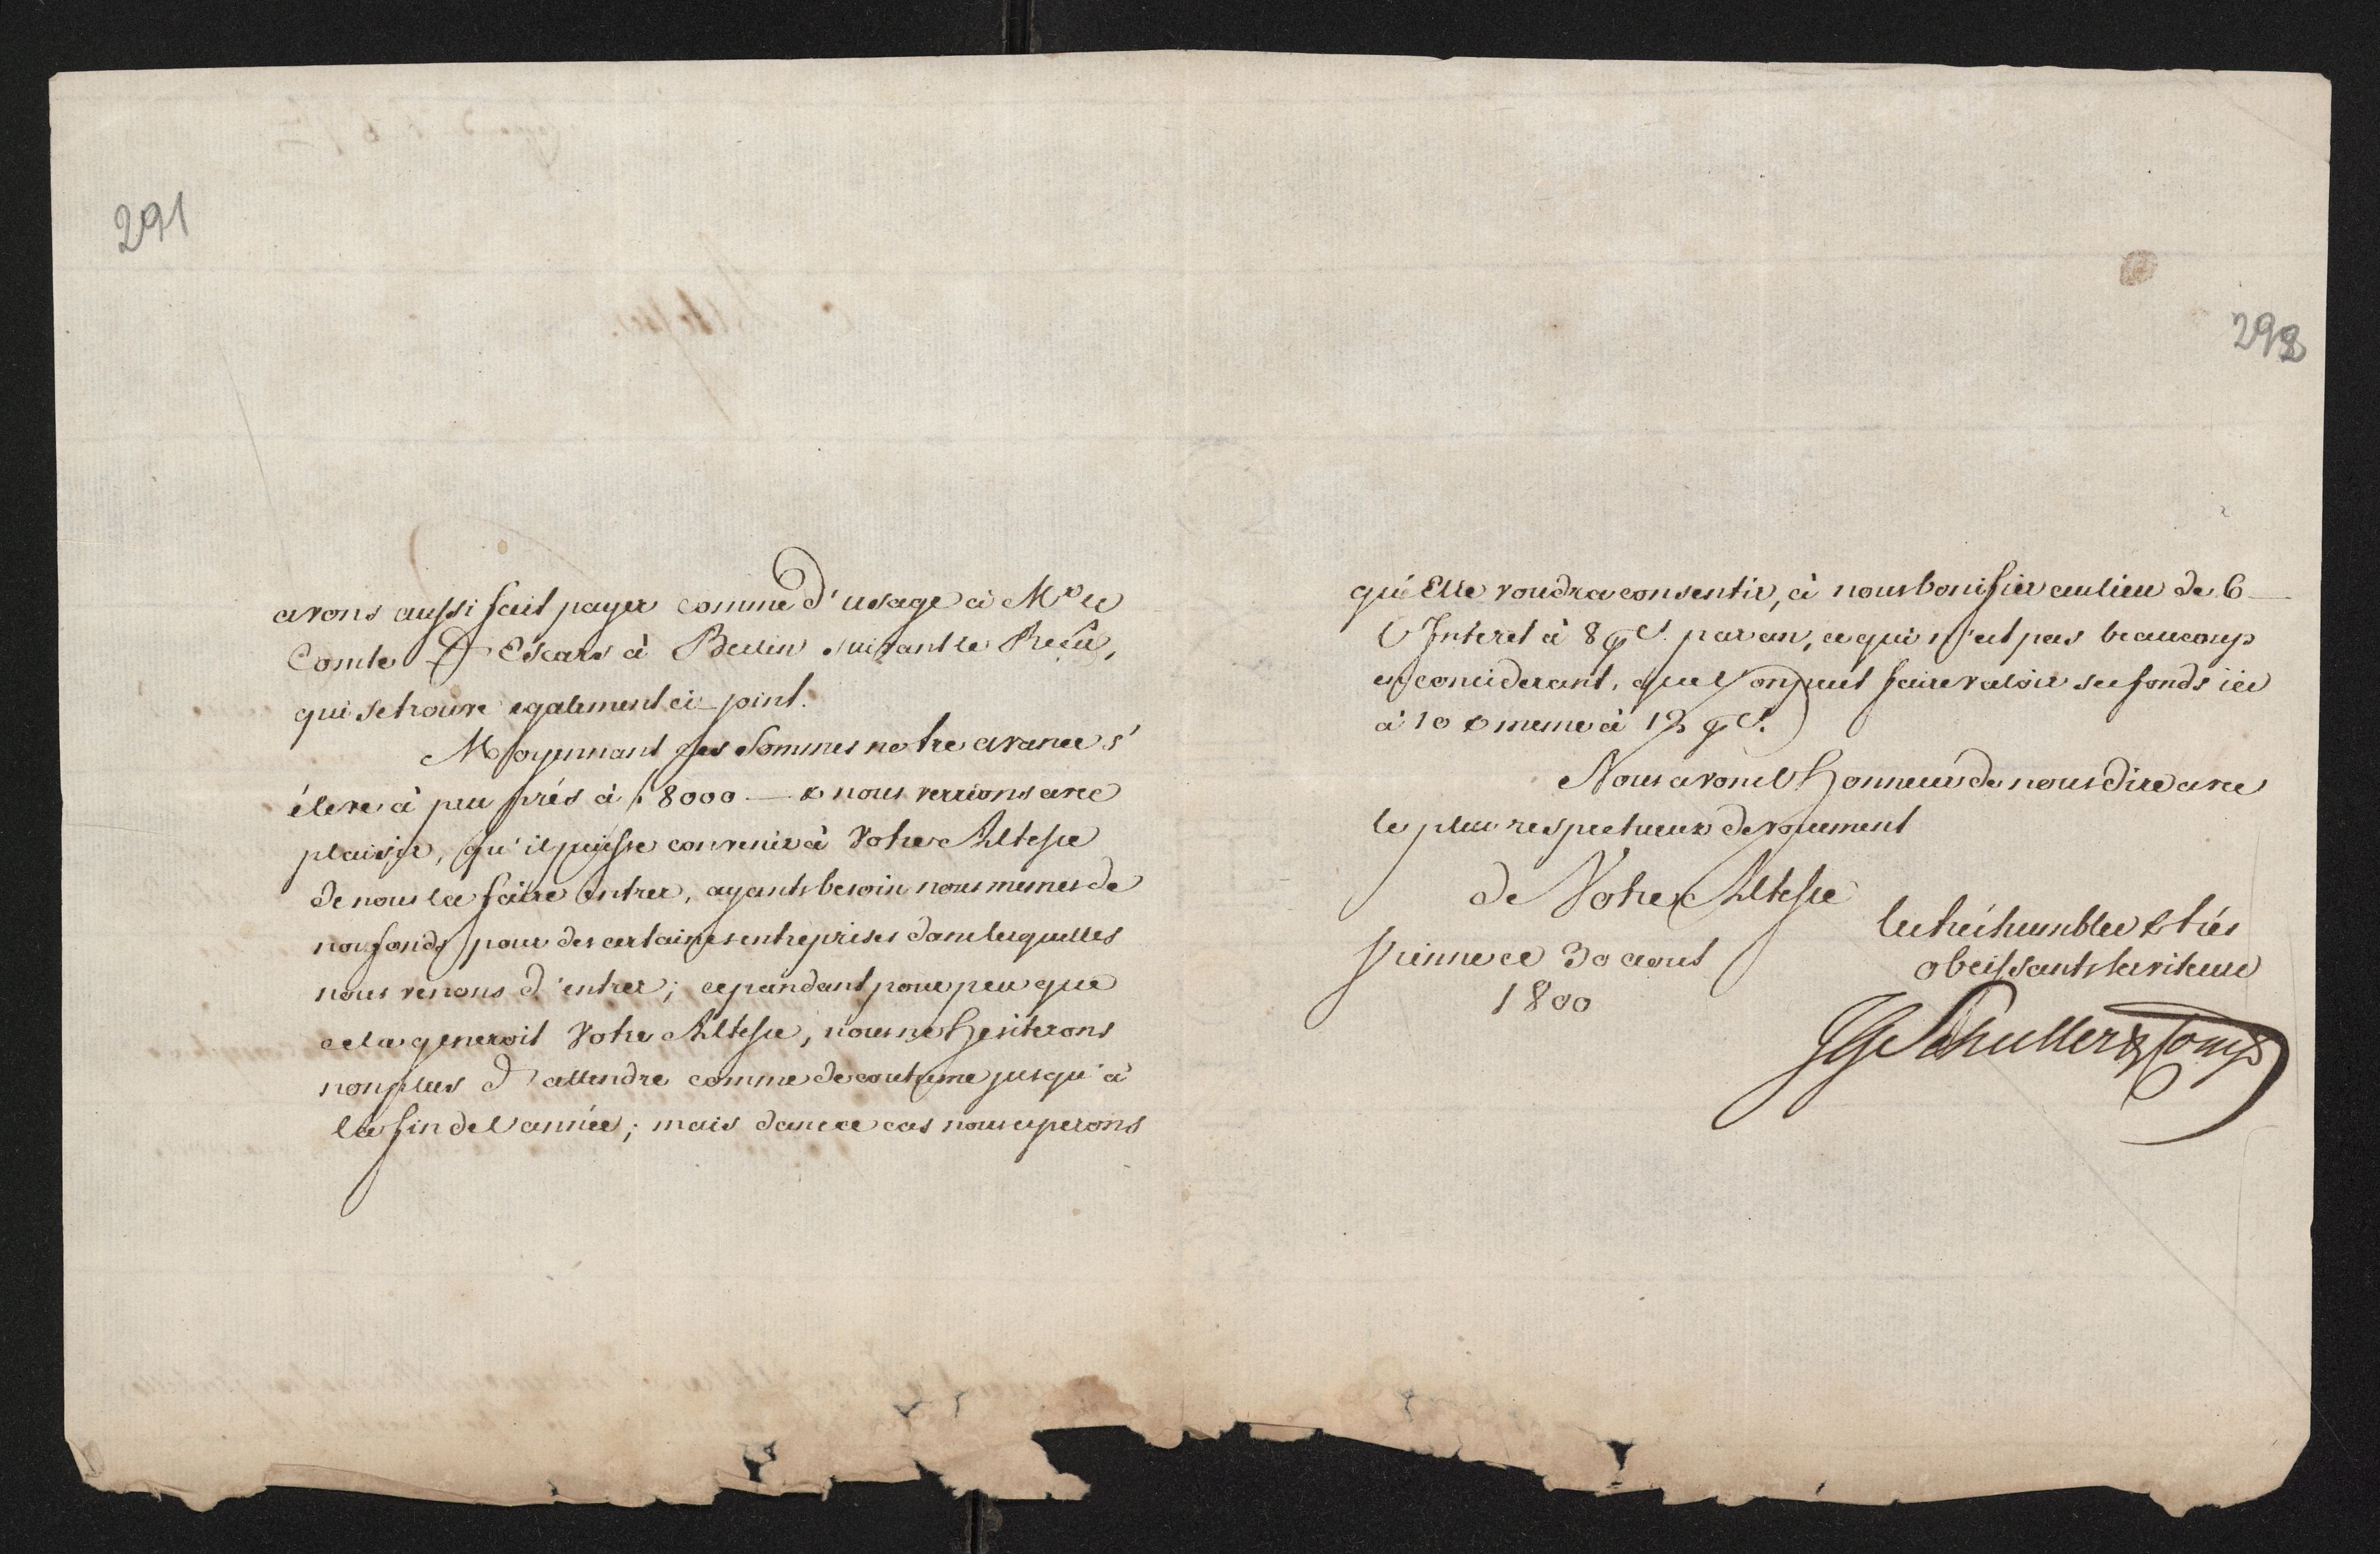 291
avons aussi fait payer comme d'usage à Mr le
Comte D'Escars à Berlin suivant le Reçû,
qui se trouve egalement ci-joint.
Moyennant ces Sommes notre avance s'
éleve à peu près à f 8000 — & nous verrions avec
plaisir, qu'il puisse convenir à Votre Altesse
de nous la faire entrer, ayants besoin nous memes de
nos fonds pour des certaines entreprises dans lesquelles
nous venons d'entrer; cependant pour peu que
cela generoit Votre Altesse, nous ne hesiterons
non plus d'attendre comme de coutume jusqu'à
la fin de l'année; mais dans ce cas nous esperons
292
qu'Elle voudra consentir, à nous bonifier au lieu de 6 —
l'Interet à 8 pCt. par an, ce qui n'est pas beaucoup
en considerant, que l'on peut faire valoir ses fonds ici
à 10 & meme à 12 pCt.
Nous avons l'honneur de nous dire avec
le plus respectueux devouement
de Votre Altesse
les très humbles & très
obeissants serviteurs
Vienne ce 30 aout
1800
JG Schuller & Comp